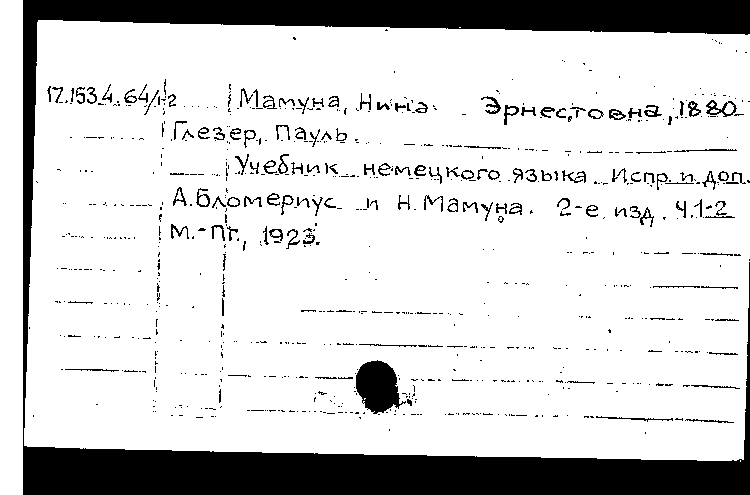 17.153.4.64/1-2 Мамуна, Нина Эрнестовна, 1880
Глезер, Пауль.
Учебник немецкого языка. Испр. и доп.
А.Бломериус и Н.Мамуна. 2-е изд. Ч.1-2
М.-Пг., 1923.